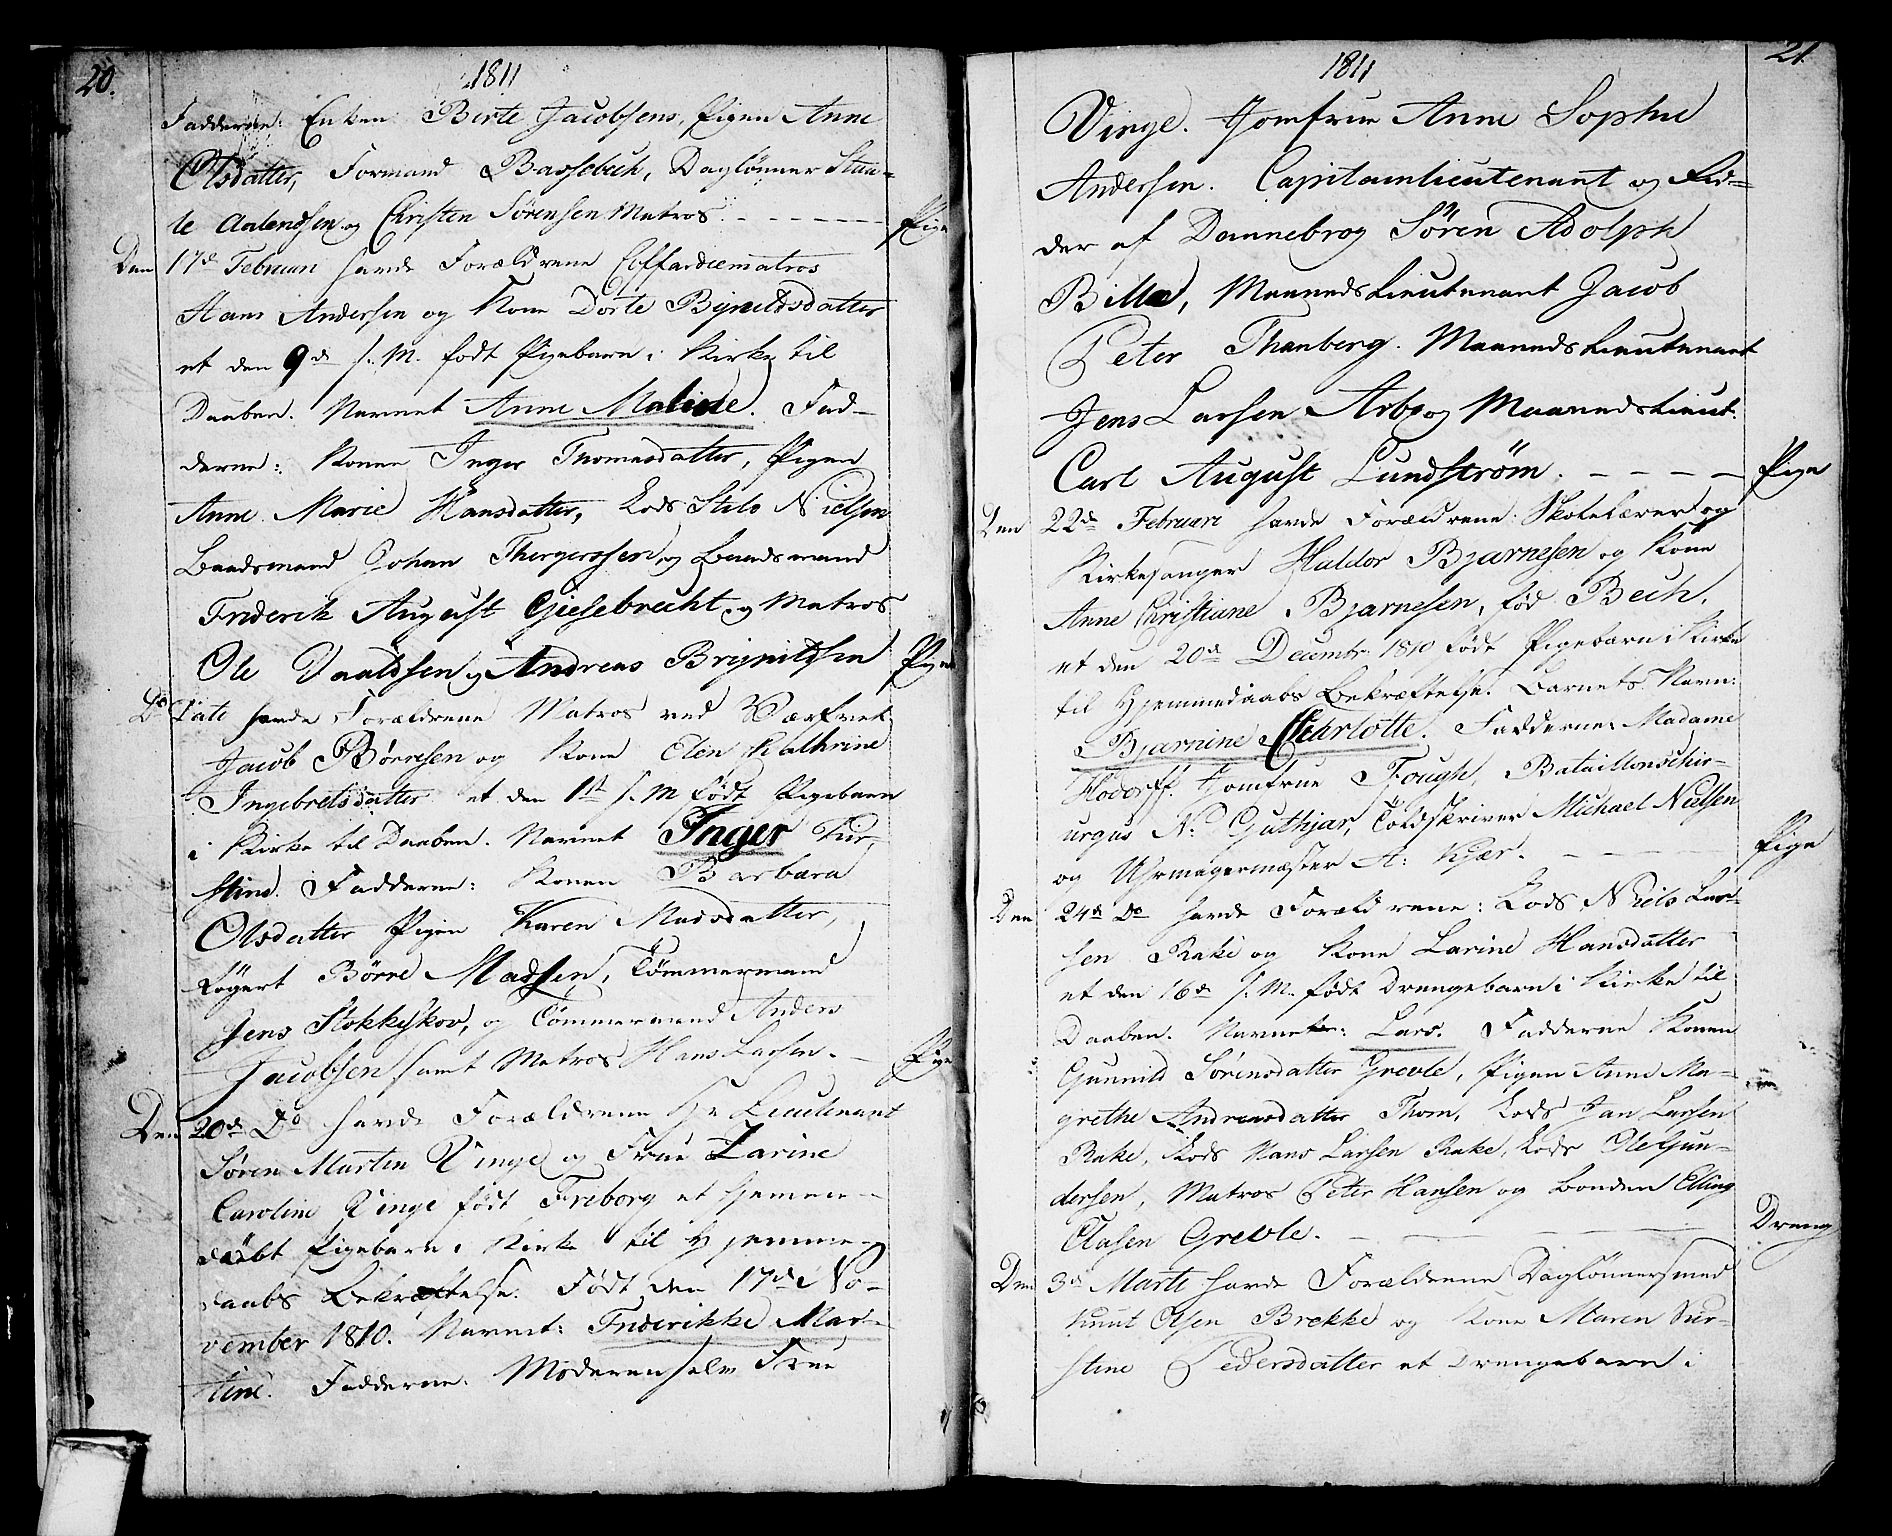 20.
1811
Fadderne: Enken Birte Jacobsens, Pigen Anne
Olsdatter, Formand Bassebech, Daglønner
og Christen Sørensen Matros. Pige
Den 17de Februari havde Forældrene Coffardiematros
Hans Andersen og Kone Dorte
et den 9de s. M. født Pigebarn i Kirke til
Daaben. Navnet Anne Malene. Fad-
derne: Konen Inger Thomesdatter, Pigen
Anne Marie Hansdatter, Lods Nielsen
Baadsmand Johan og Baadsmand
Friderik August Giesebrecht og Matros
Ole og Andreas Pige
Do Dato havde Forældrene Matros ved Værfvet
Jacob Børresen og Kone Elen Kathrine
Ingebretsdatter et den 1st s. M født Pigebarn
i Kirke til Daaben. Navnet Inger Kir-
stine. Fadderne: Konen Barbara
Olsdatter Pigen Karen Madsdatter,
Børre Madsen, Tømmermand
Jens Stokkeskov, og Tømmermand Anders
Jacobsen samt Matros Hans Larsen. Pige
Den 20de Do havde Forældrene Hr Lieutenant
Søren Martin Vinge og Frue Larine
Caroline Vinge født Freborg et hjemme-
døbt Pigebarn i Kirke til Hjemme-
daabs Bekræftelse. Født den 17de No-
vember 1810. Navnet: Friderikke Mar-
tine. Fadderne: Moderen selv Frue
21
1811
Vinge. Jomfrue Anne Sophie
Andersen. Capitainlieutenant og Rid-
der af Dannebrog Søren Adolph
Bille, Maaneds Lieutenant Jacob
Peter Thanberg. Maaneds Lieutenant
Jens Larsen Arbo og Maaneds Lieut.
Carl August Lundstrøm. Pige
Den 22de Februari havde Forældrene: Skolelærer og
Kirkesanger Haldor Bjarnesen og Kone
Anne Christiane Bjarnesen, fød Bech,
et den 20de Decembr. 1810 født Pigebarn i Kirke
til Hjemmedaabs Bekræftelse. Barnets Navn:
Bjarnine Charlotte. Fadderne: Madame
Hodorff. Jomfrue Fough, Bataillonschir-
urgus N: Guthjar, Toldskriver Michael Nielsen
og Uhrmagermæster A: Kjær. Pige
Den 24de Do havde Forældrene: Lods Niels Lar-
sen Rake og Kone Larine Hansdatter
et den 16de s. M. født Drengebarn i Kirke til
Daaben. Navnet: Lars. Fadderne Konen
Gunnild Sørensdatter Grevle, Pigen Anne Ma-
grethe Andreasdatter Thom, Lods Jan Larsen
Rake, Lods Hans Larsen Rake, Lods Ole Gun-
dersen, Matros Peter Hansen og Bonden Elling
Olasen Grevle. Dreng
Den 3de Marti havde Forældrene Daglønnersmed
Knut Olsen Brekke og Kone Maren Kir-
stine Pedersdatter et Drengebarn i